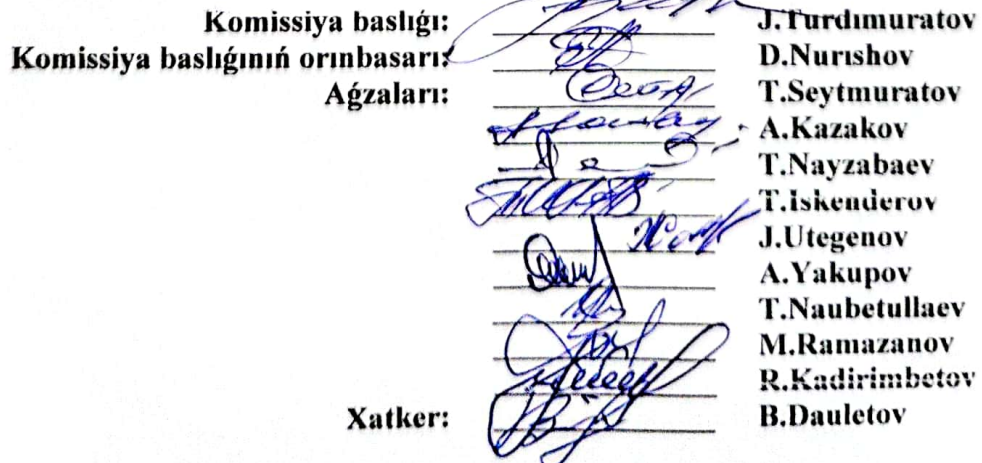 Komissiya baslıǵı: J.Turdimuratov
Komissiya baslıǵınıń orınbasarı: D.Nurıshov
Aǵzaları: T.Seytmuratov
A.Kazakov
T.Nayzabaev
T.Iskenderov
J.Utegenov
A.Yakupov
T.Naubetullaev
M.Ramazanov
R.Kadirimbetov
Xatker: B.Dauletov